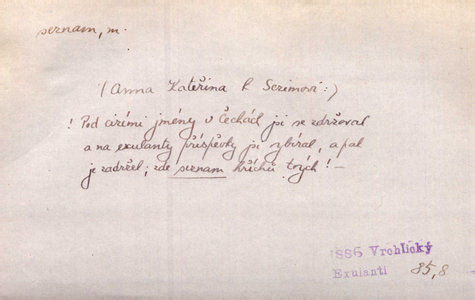 seznam, m.
(Anna Kateřina k Sezimovi:)
! Pod cizími jmény v Čechách jsi se zdržoval
a na exulanty příspěvky jsi vybíral, a pak
je zadržel; zde seznam hříchů tvých! —
1886 Vrchlický
Exulanti 85,8